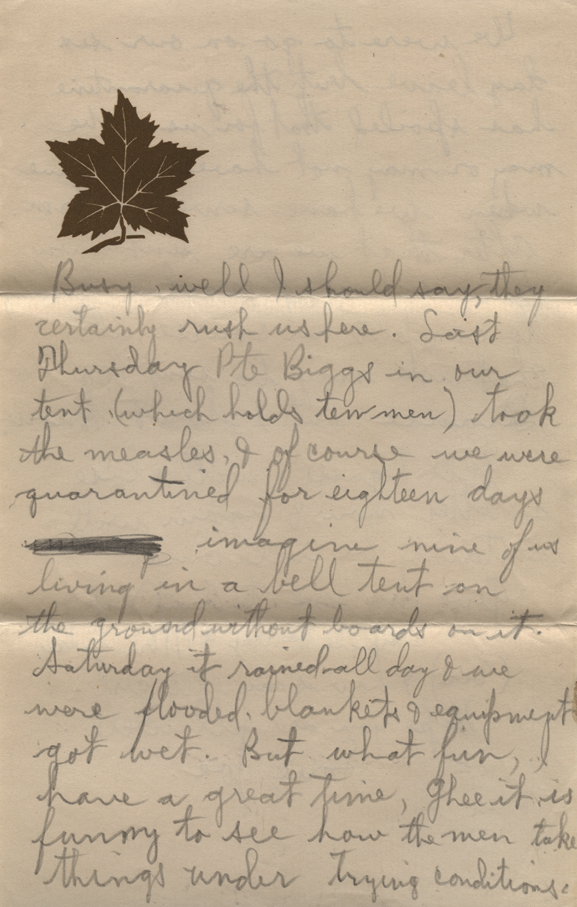 Busy, well I should say, they
certainly rush us here. Last
Thursday Pte Biggs in our
tent (which holds ten men) took
the measles, & of course we were
quarantined for eighteen days
imagine nine of us
living in a bell tent on
the ground without boards on it.
Saturday it rained all day & we
were flooded. blankets & equipment
got wet. But what fun, I
have a great time, Ghee it is
funny to see how the men take
things under trying conditions.